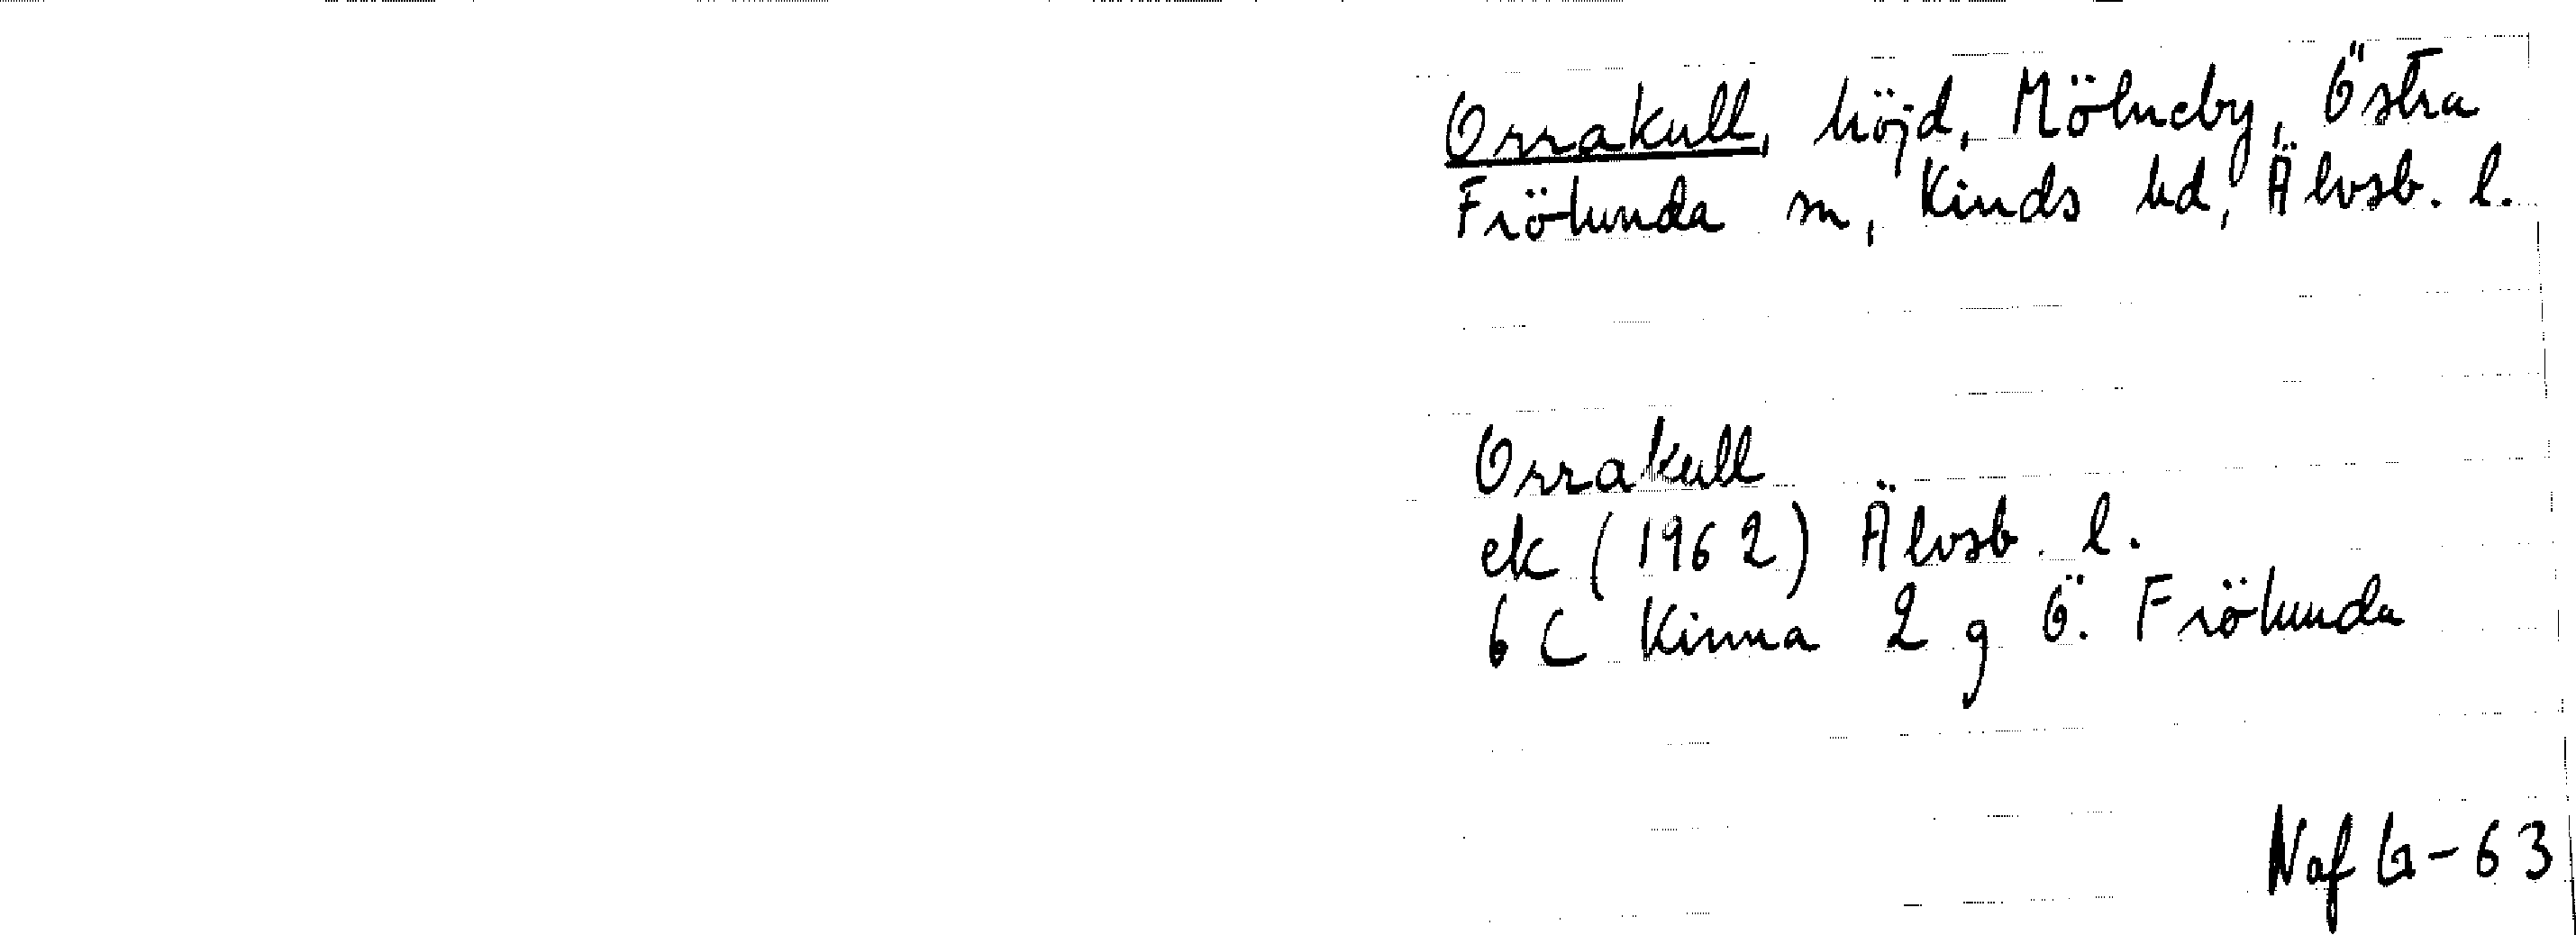 Orrakull, höjd, Mölneby, Östra
Frölunda sn, Kinds hd, Älvsb. l.
Orrakull
ek (1962) Älvsb. l.
6 C Kinna 2 g Ö. Frölunda
Naf G-63